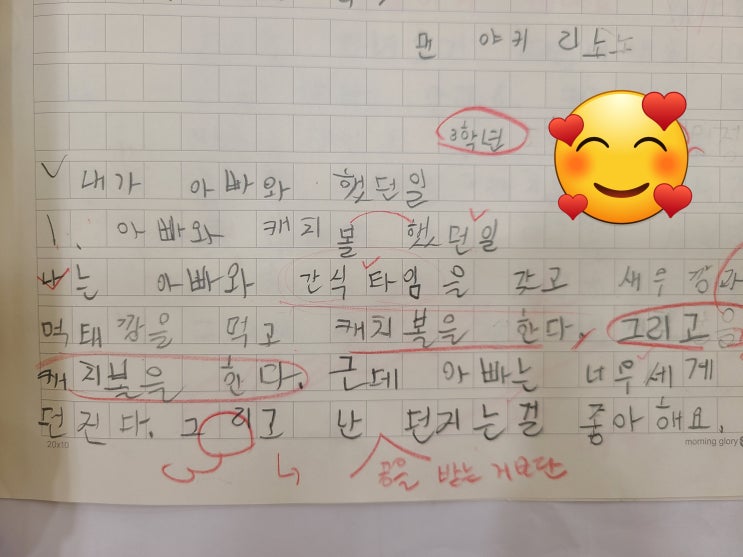 면 야커 리노노
3학년
내가 아빠와 했던일
1. 아빠와 캐치볼 했던일
나는 아빠와 간식타임을 갖고 새우깡과
먹태깡을 먹고 캐치볼을 한다. 그리고
캐치볼을 한다. 근데 아빠는 너무세게
던진다. 그리고 난 던지는걸 좋아해요.
공을 받는 거보단
20x10
morning glory